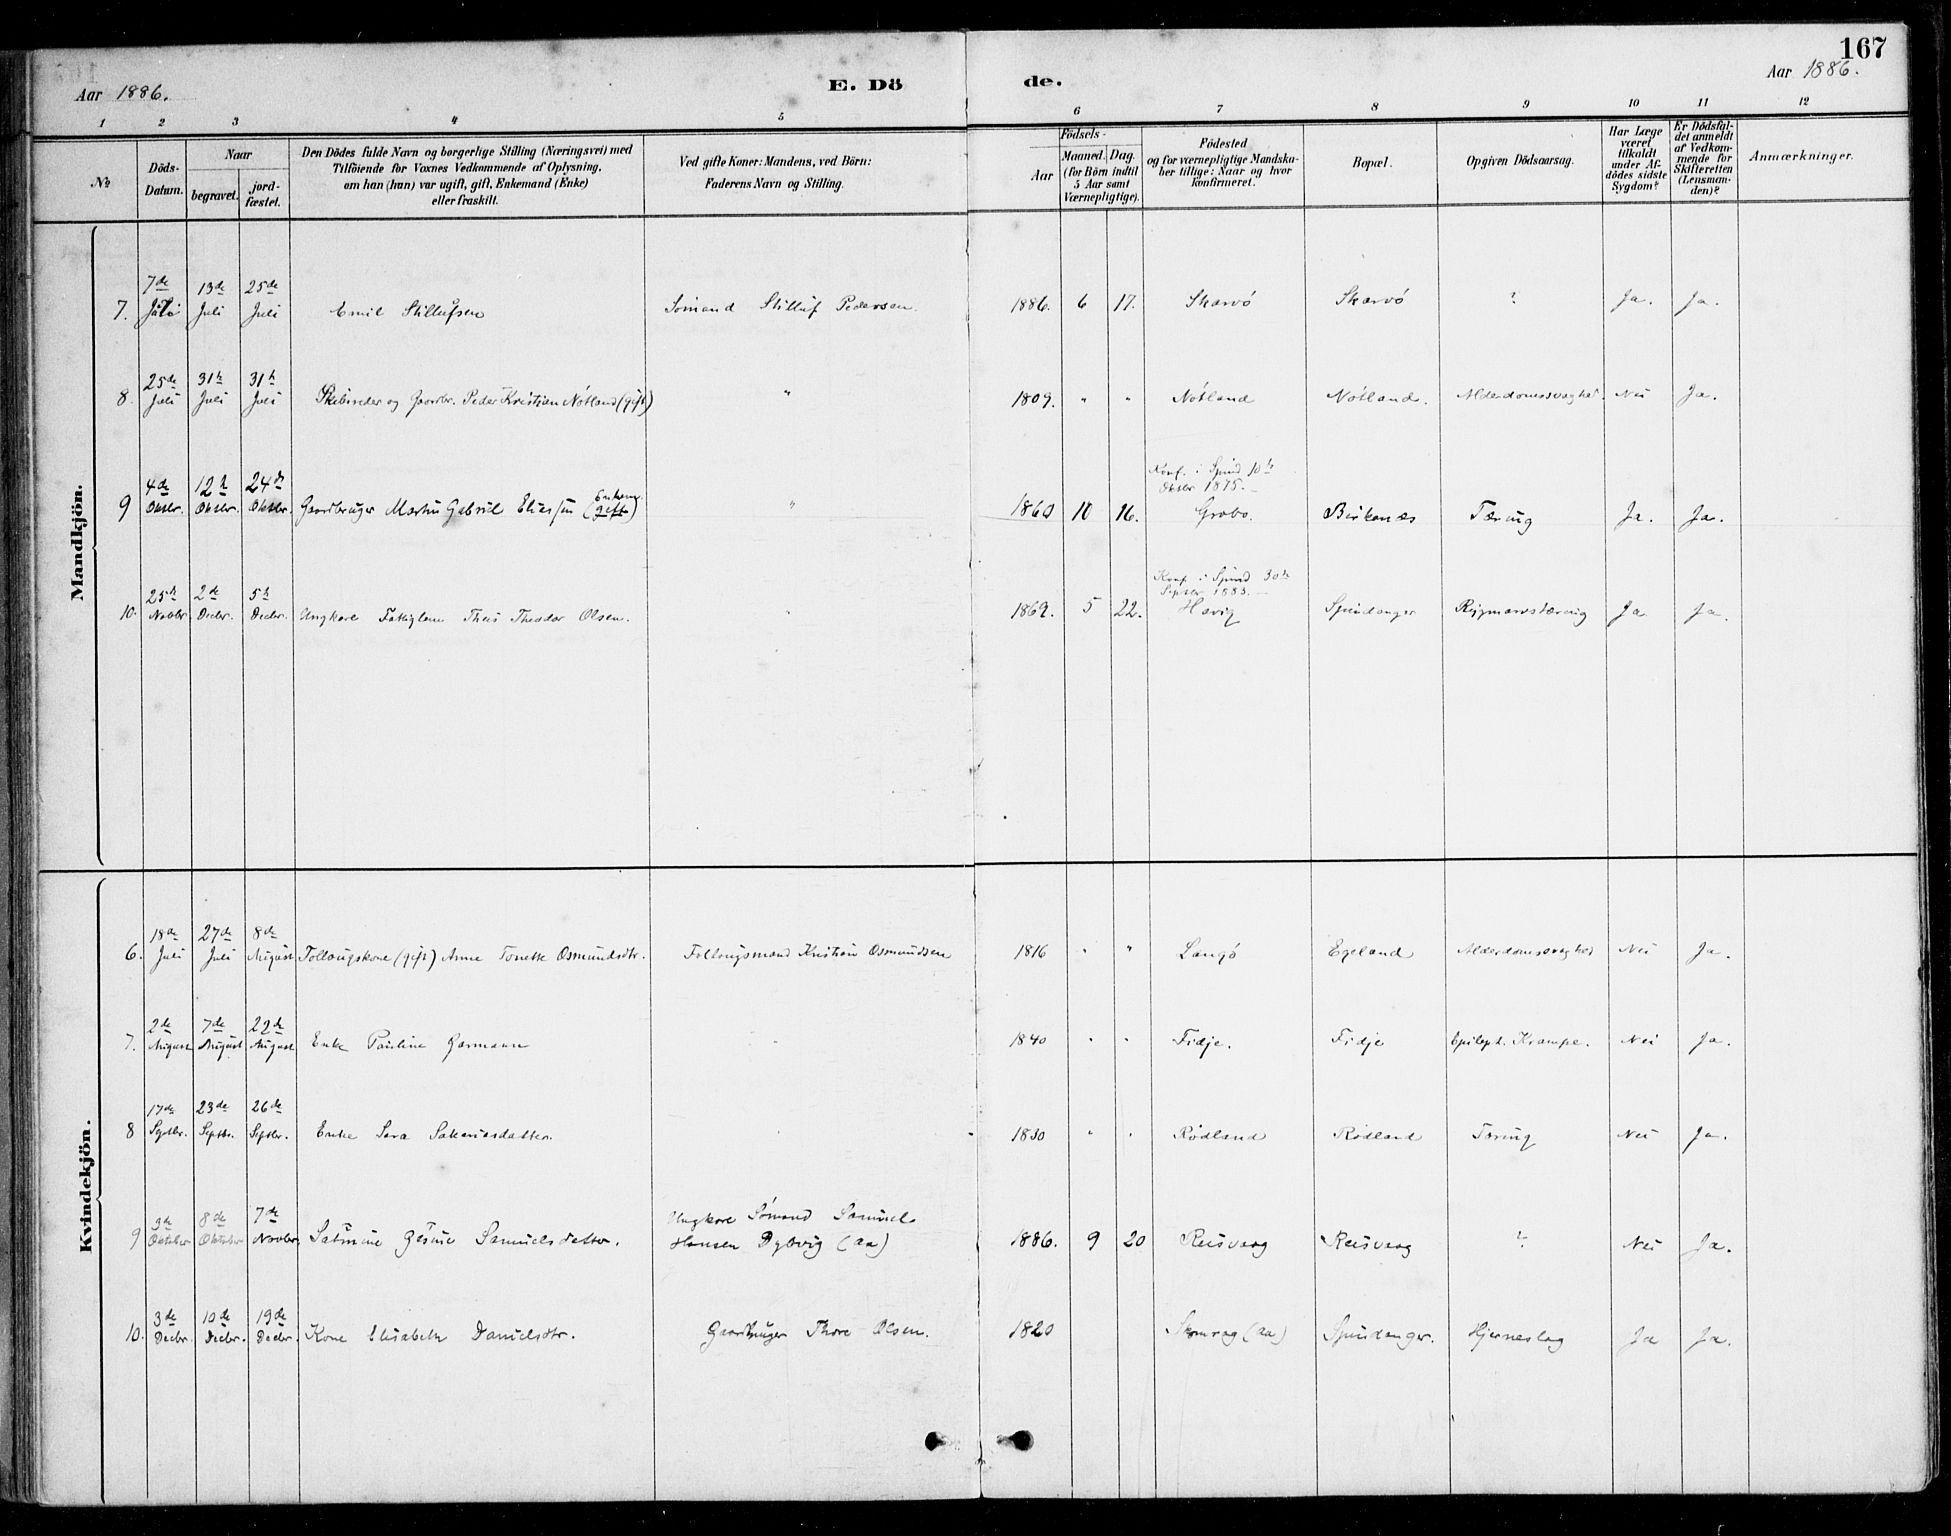 167
Aar 1886.
E. Dö
de.
Aar 1886.
1 2 3 4 5 6 7 8 9 10 11 12
No
Döds-Datum.
Naar
begravet.
jord-fæstet.
Den Dödes fulde Navn og borgerlige Stilling (Næringsvei) med
Tilföiende for Voxnes Vedkommende af Oplysning,
om han (hun) var ugift, gift, Enkemand (Enke)
eller fraskilt.
Ved gifte Koner: Mandens, ved Börn:
Faderens Navn og Stilling.
Födsels-
Aar
Maaned. Dag.
(for Börn indtil
5 Aar samt
Værnepligtige).
Födested
og for værnepligtige Mandska-
ber tillige: Naar og hvor
konfirmeret.
Bopæl.
Opgiven Dödsaarsag.
Har Læge
været
tilkaldt
under Af-
dödes sidste
Sygdom?
Er Dödsfal-
det anmeldt
af Vedkom-
mende for
Skifteretten
(Lensman-
den)?
Anmærkninger.
Mandkjön.
7de 13de 25de
7. Juli Juli Juli Emil Stillufsen Sömand Stilluf Pedersen. 1886. 6 17. Skarvö Skarvö ? Ja. Ja.
25de 31te 31te
8. Juli Juli Juli Skibsreder og Gaardbr. Peder Kristian Nötland (gift) " 1809. " " Nötland Nötland. Alderdomssvaghed. Nei Ja.
Konf. i Spind 10de
4de 12te 24de Enkem. Oktbr 1875.
9 Oktbr. Oktbr. Oktbr. Gaardbruger Martin Gabriel Eliassen (gift) " 1860 10 16. Grobo. Birkenes Tæring Ja. Ja.
Konf. i Spind 30te
25te 2de 5te Septbr. 1883.
10. Novbr. Decbr. Decbr. Ungkare Theis Theodor Olsen. " 1869. 5 22. Havig Spindanger Rygmarvstæring Ja Ja.
Kvindekjön.
18de 27de 8de
6. Juli Juli August Follougskone (gift) Anne Tonette Osmundsdtr. Follougsmand Kristian Osmundsen 1816 " " Langö Egeland Alderdomssvaghed Nei Ja.
2de 7de 22de
7. August August August Enke Pauline Garmann 1840 " " Fidje. Fidje Epilept. Krampe. Nei Ja.
17de 23de 26de
8 Septbr. Septbr. Septbr. Enke Sara Sakariasdatter. 1830 " " Rödland Rödland Tæring Nei Ja.
3de 8de 7de Ungkare Sömand Samuel
9 Oktober Oktober Novbr. Samuelsdatter. Hansen Dybvig (aa) 1886. 9 20 Reisvaag Reisvaag ? Nei Ja.
3de 10de 19de
10. Decbr. Decbr. Decbr. Kone Elisabeth Danielsdtr. Gaardbruger Thore Olsen. 1820 (aa) Spindanger. Hjerneslag Ja Ja.